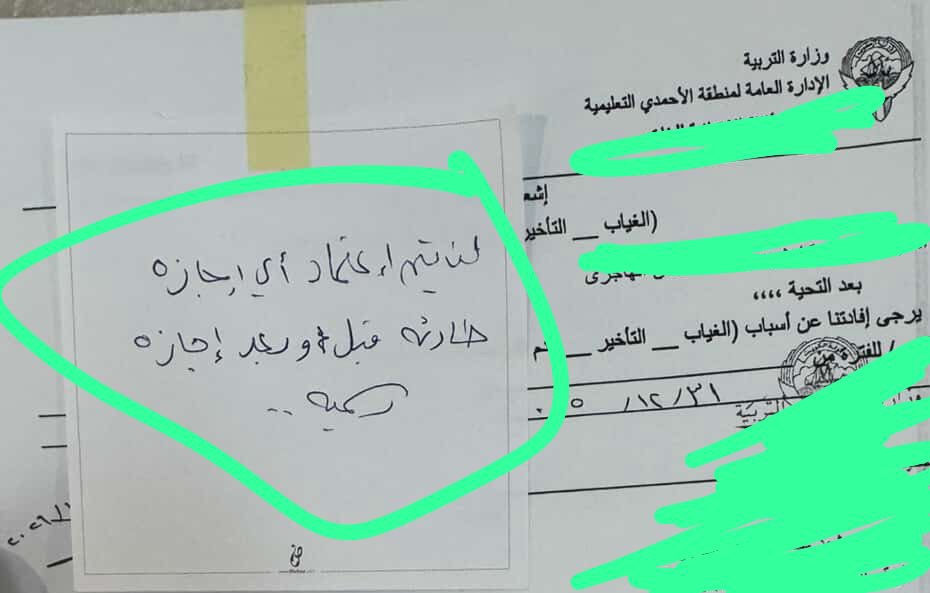 وزارة التربية
الإدارة العامة لمنطقة الأحمدي التعليمية
إشعا
(الغياب __ التأخير
الهاجرى
بعد التحية ,,,,
يرجى إفادتنا عن أسباب (الغياب __ التأخير __
/ للفتر
من
٣١/١٢/
التربية
لن يتم إعتماد أي إجازه
طارئه قبل أو بعد إجازه
رسميه ..